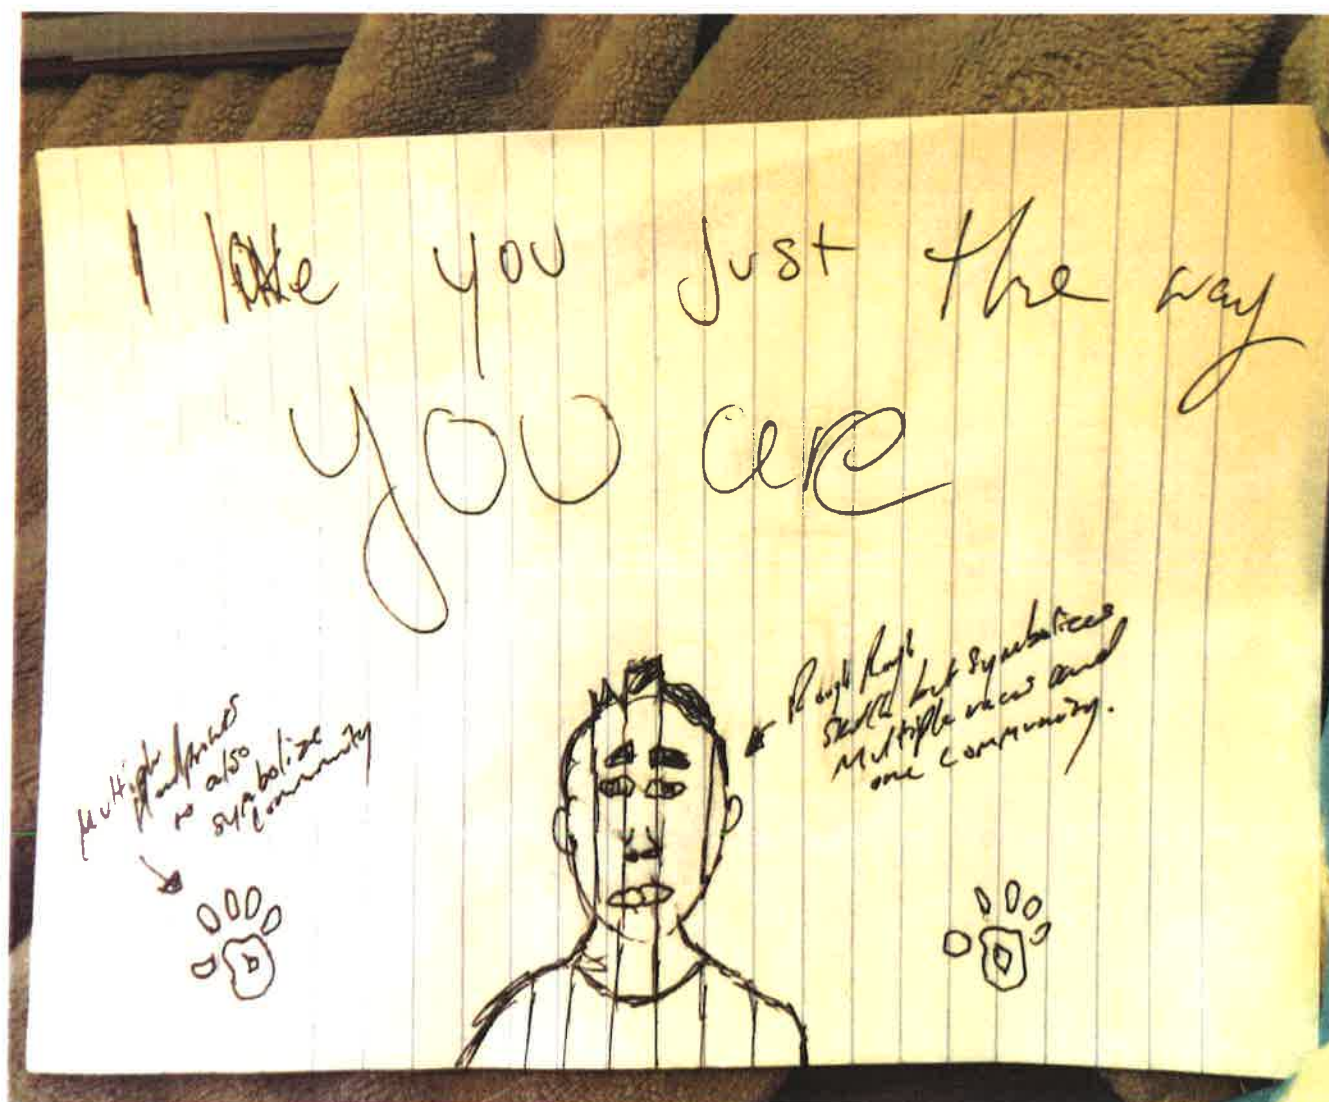 I like you Just the way
you are
Multiple
Handprints
to also
symbolize
Community
Rough Rough
sketch but symbolizes
Multiple races and
one community.